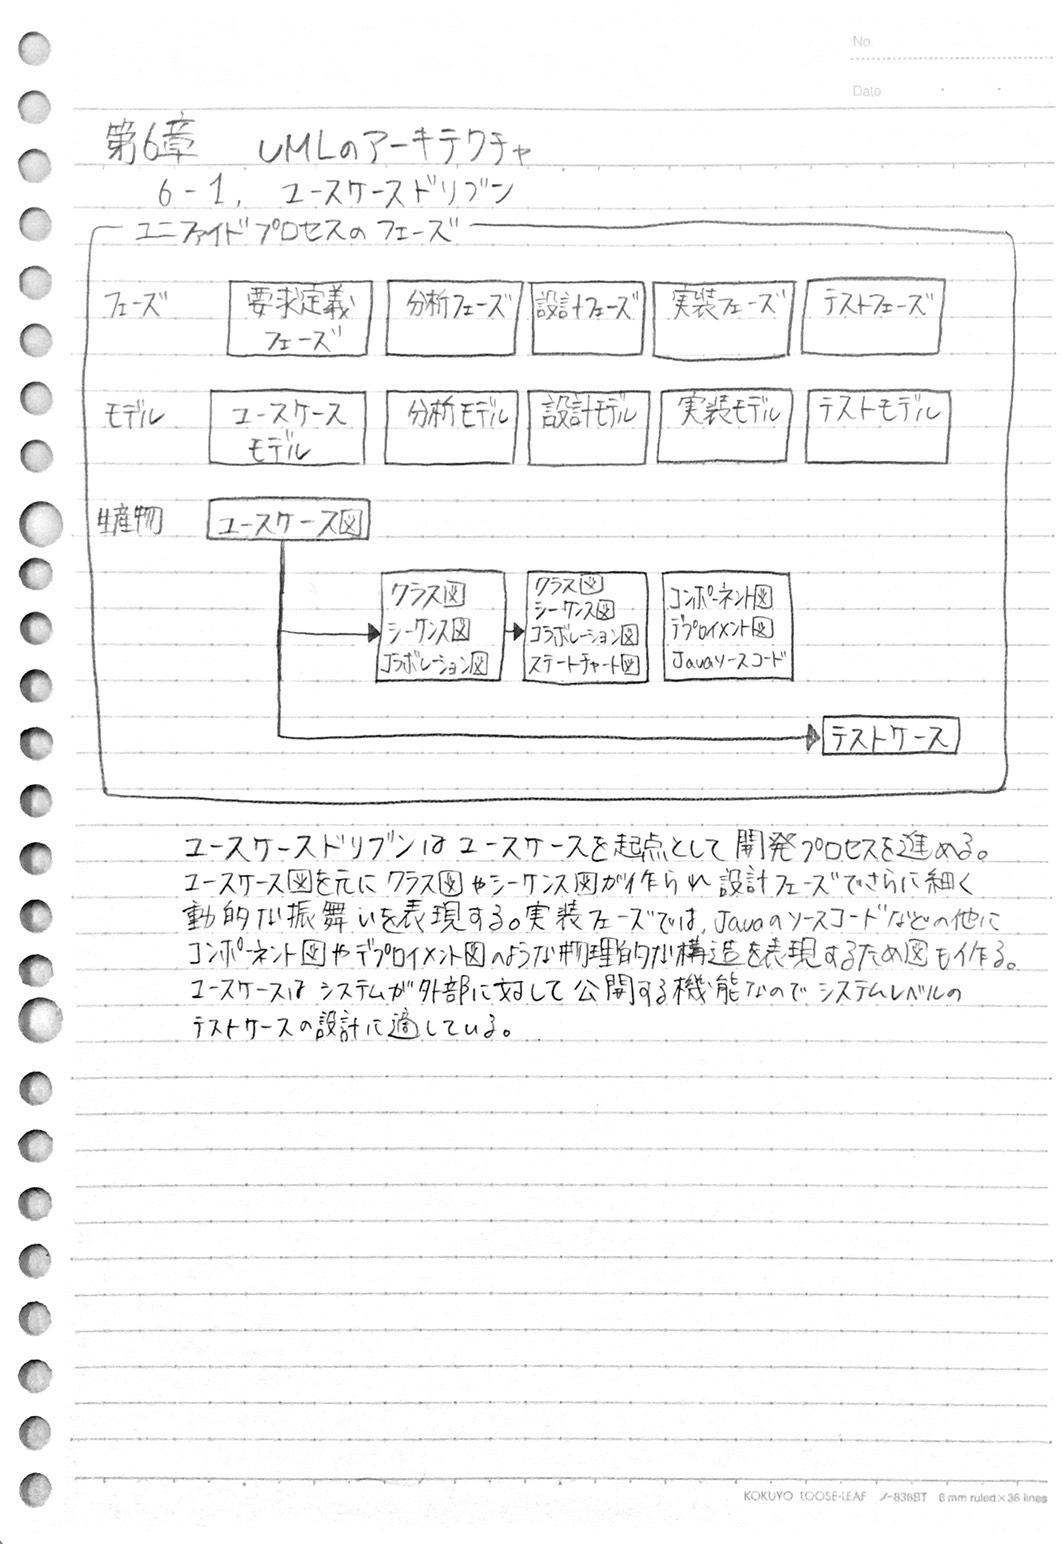 No.
Date
第6章 UMLのアーキテクチャ
6-1. ユースケースドリブン
ユニファイドプロセスのフェーズ
フェーズ 要求定義フェーズ 分析フェーズ 設計フェーズ 実装フェーズ テストフェーズ
モデル ユースケースモデル 分析モデル 設計モデル 実装モデル テストモデル
生産物 ユースケース図
クラス図
シーケンス図
コラボレーション図
クラス図
シーケンス図
コラボレーション図
ステートチャート図
コンポーネント図
デプロイメント図
Javaソースコード
テストケース
ユースケースドリブンはユースケースを起点として開発プロセスを進める。
ユースケース図を元にクラス図やシーケンス図が作られ設計フェーズでさらに細く
動的な振舞いを表現する。実装フェーズでは,Javaのソースコードなどの他に
コンポーネント図やデプロイメント図のような物理的な構造を表現するため図も作る。
ユースケースはシステムが外部に対して公開する機能なのでシステムレベルの
テストケースの設計に適している。
KOKUYO LOOSE-LEAF ノ-836BT 6 mm ruled×36 lines